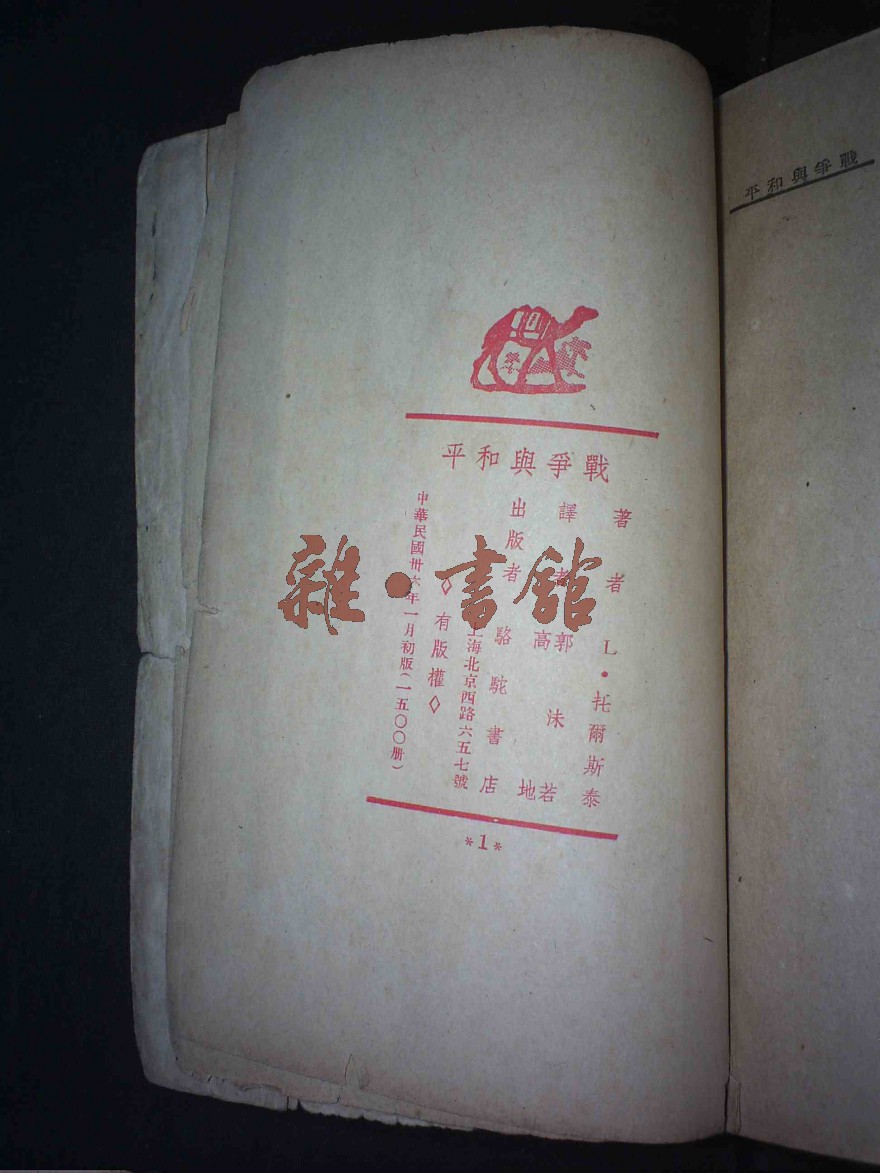 平和與爭戰
著者 L·托爾斯泰
譯者 郭沫若
高地
出版者 駱駝書店
上海北京西路六五七號
◇有版權◇
中華民國卅六年一月初版(一五〇〇册)
*1*
平和與爭戰
雜·書館